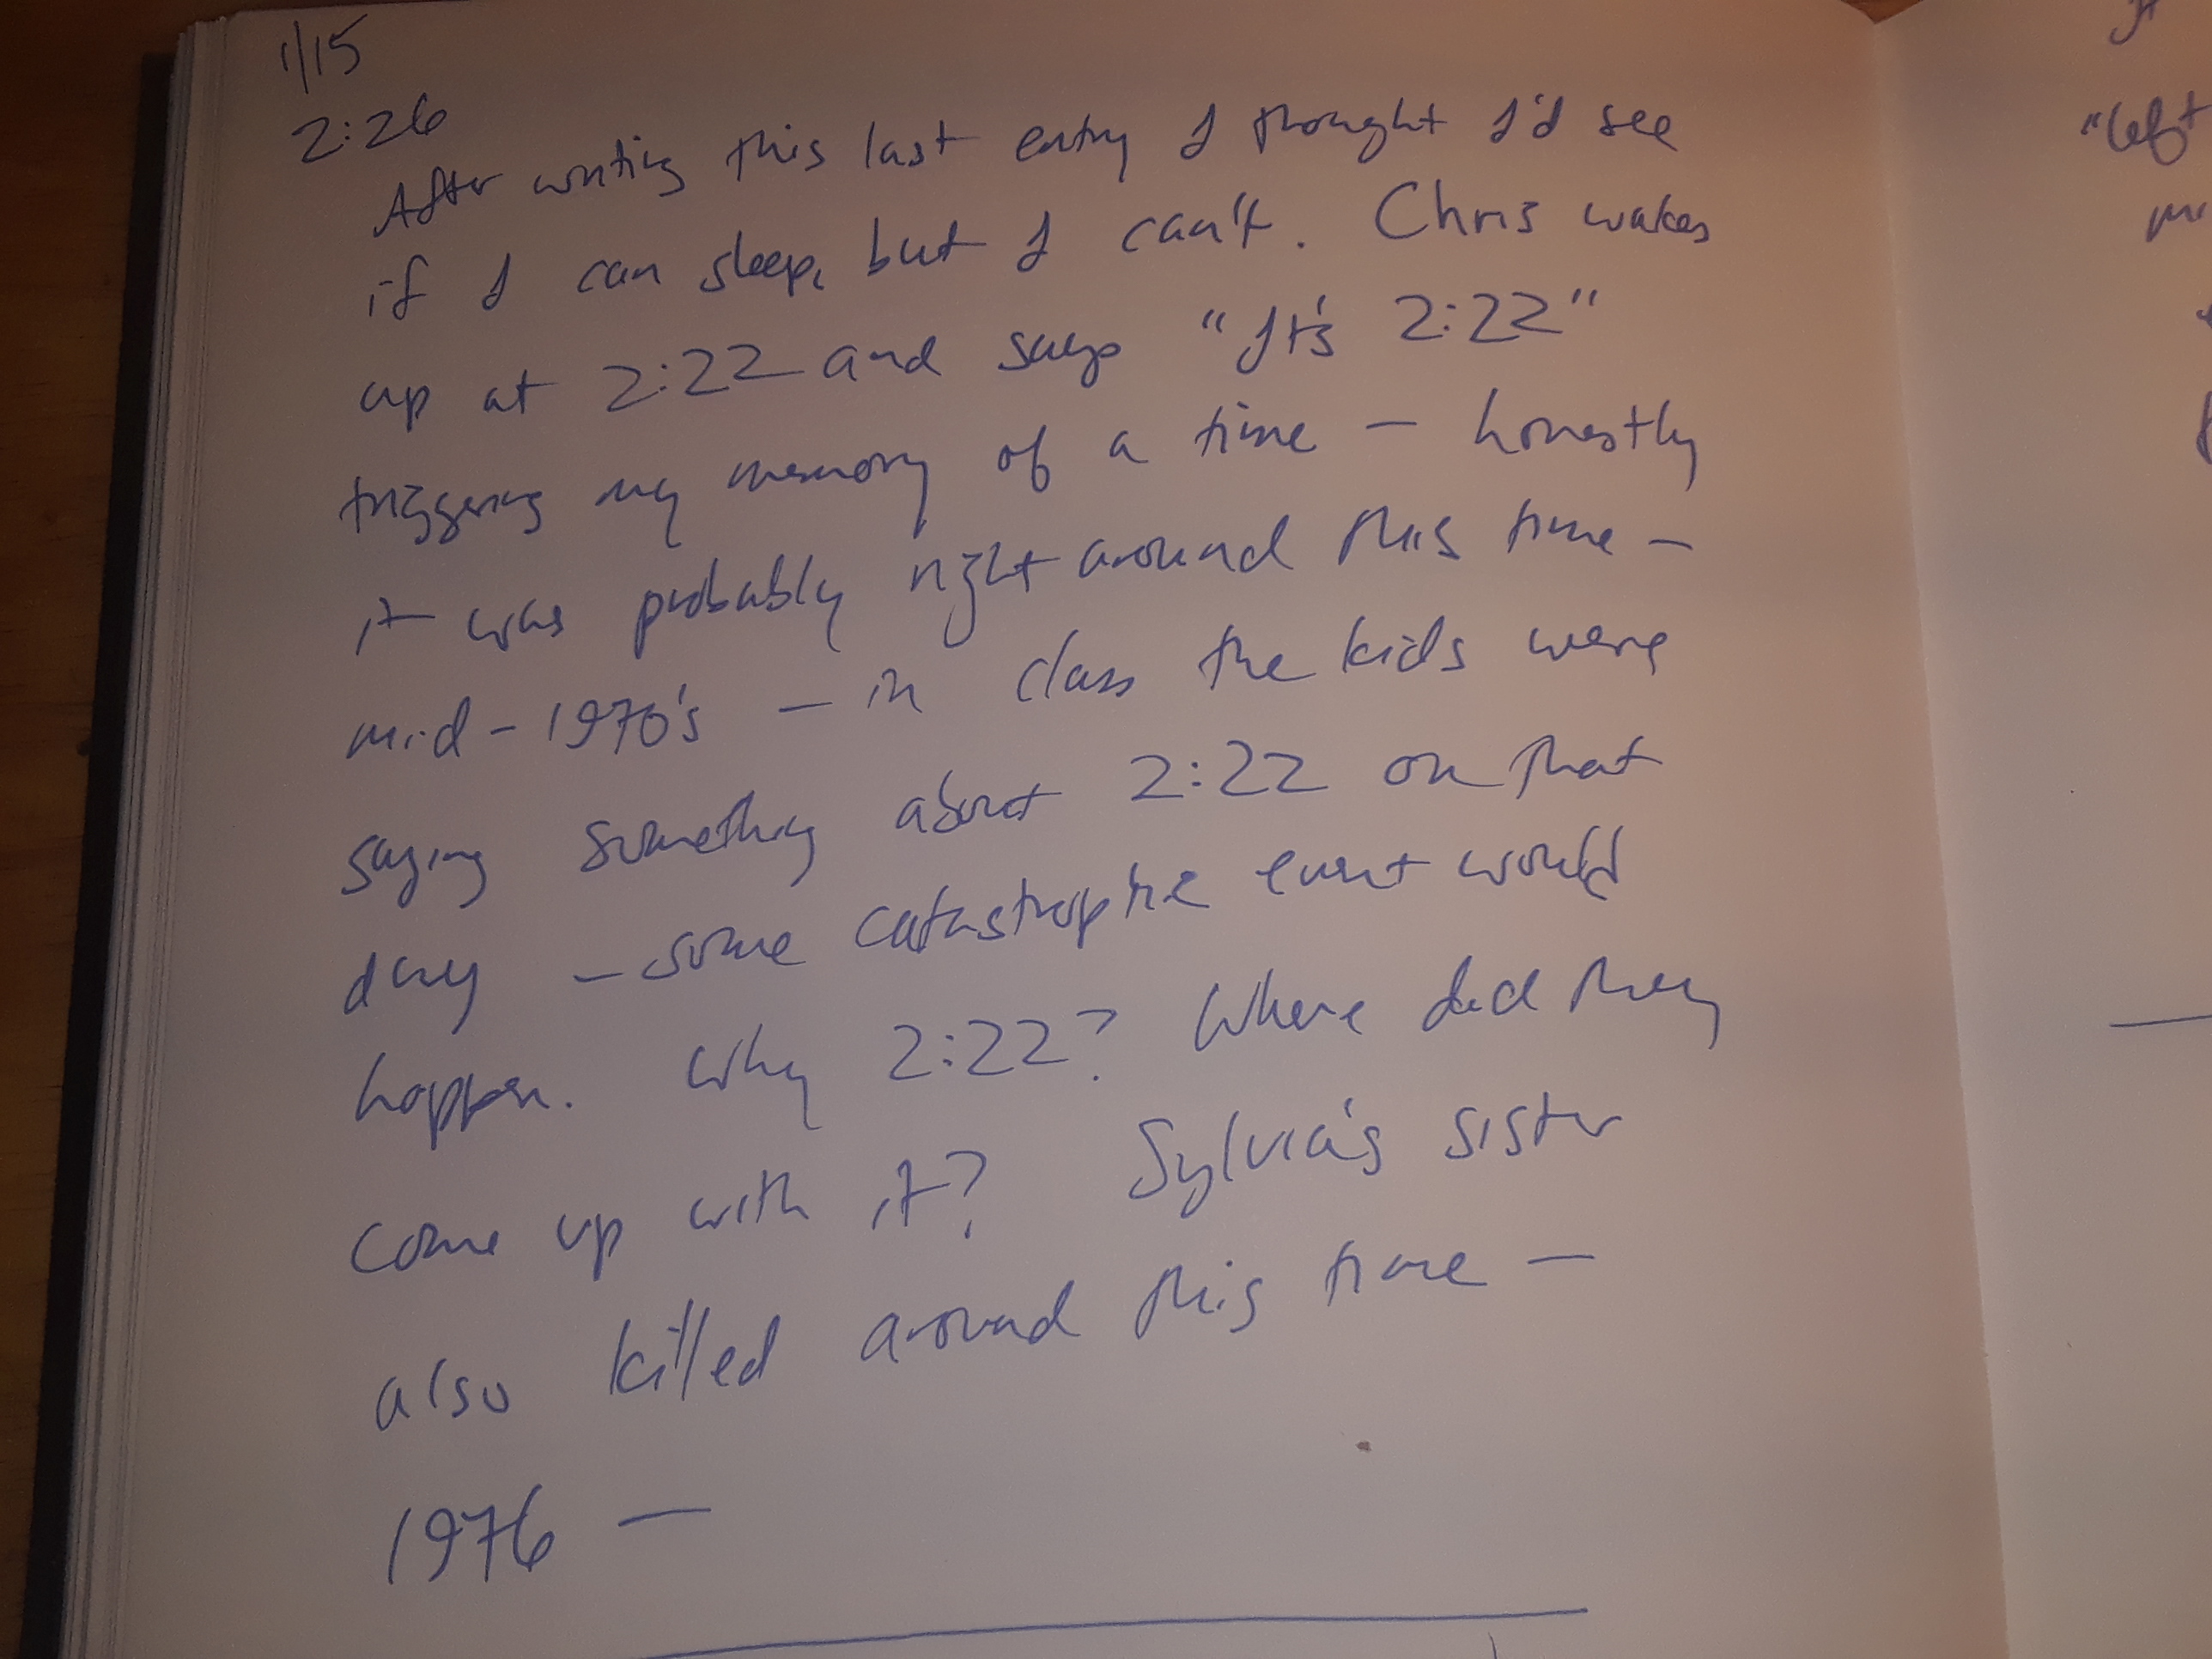 1/15
2:26
After writing this last entry I thought I'd see
if I can sleep, but I can't. Chris wakes
up at 2:22 and says "It's 2:22"
triggering my memory of a time — honestly
it was probably right around this time —
mid-1970's — in class the kids were
saying something about 2:22 on that
day — some catastrophic event would
happen. Why 2:22? Where did they
come up with it? Sylvia's sister
also killed around this time —
1976 —
"left